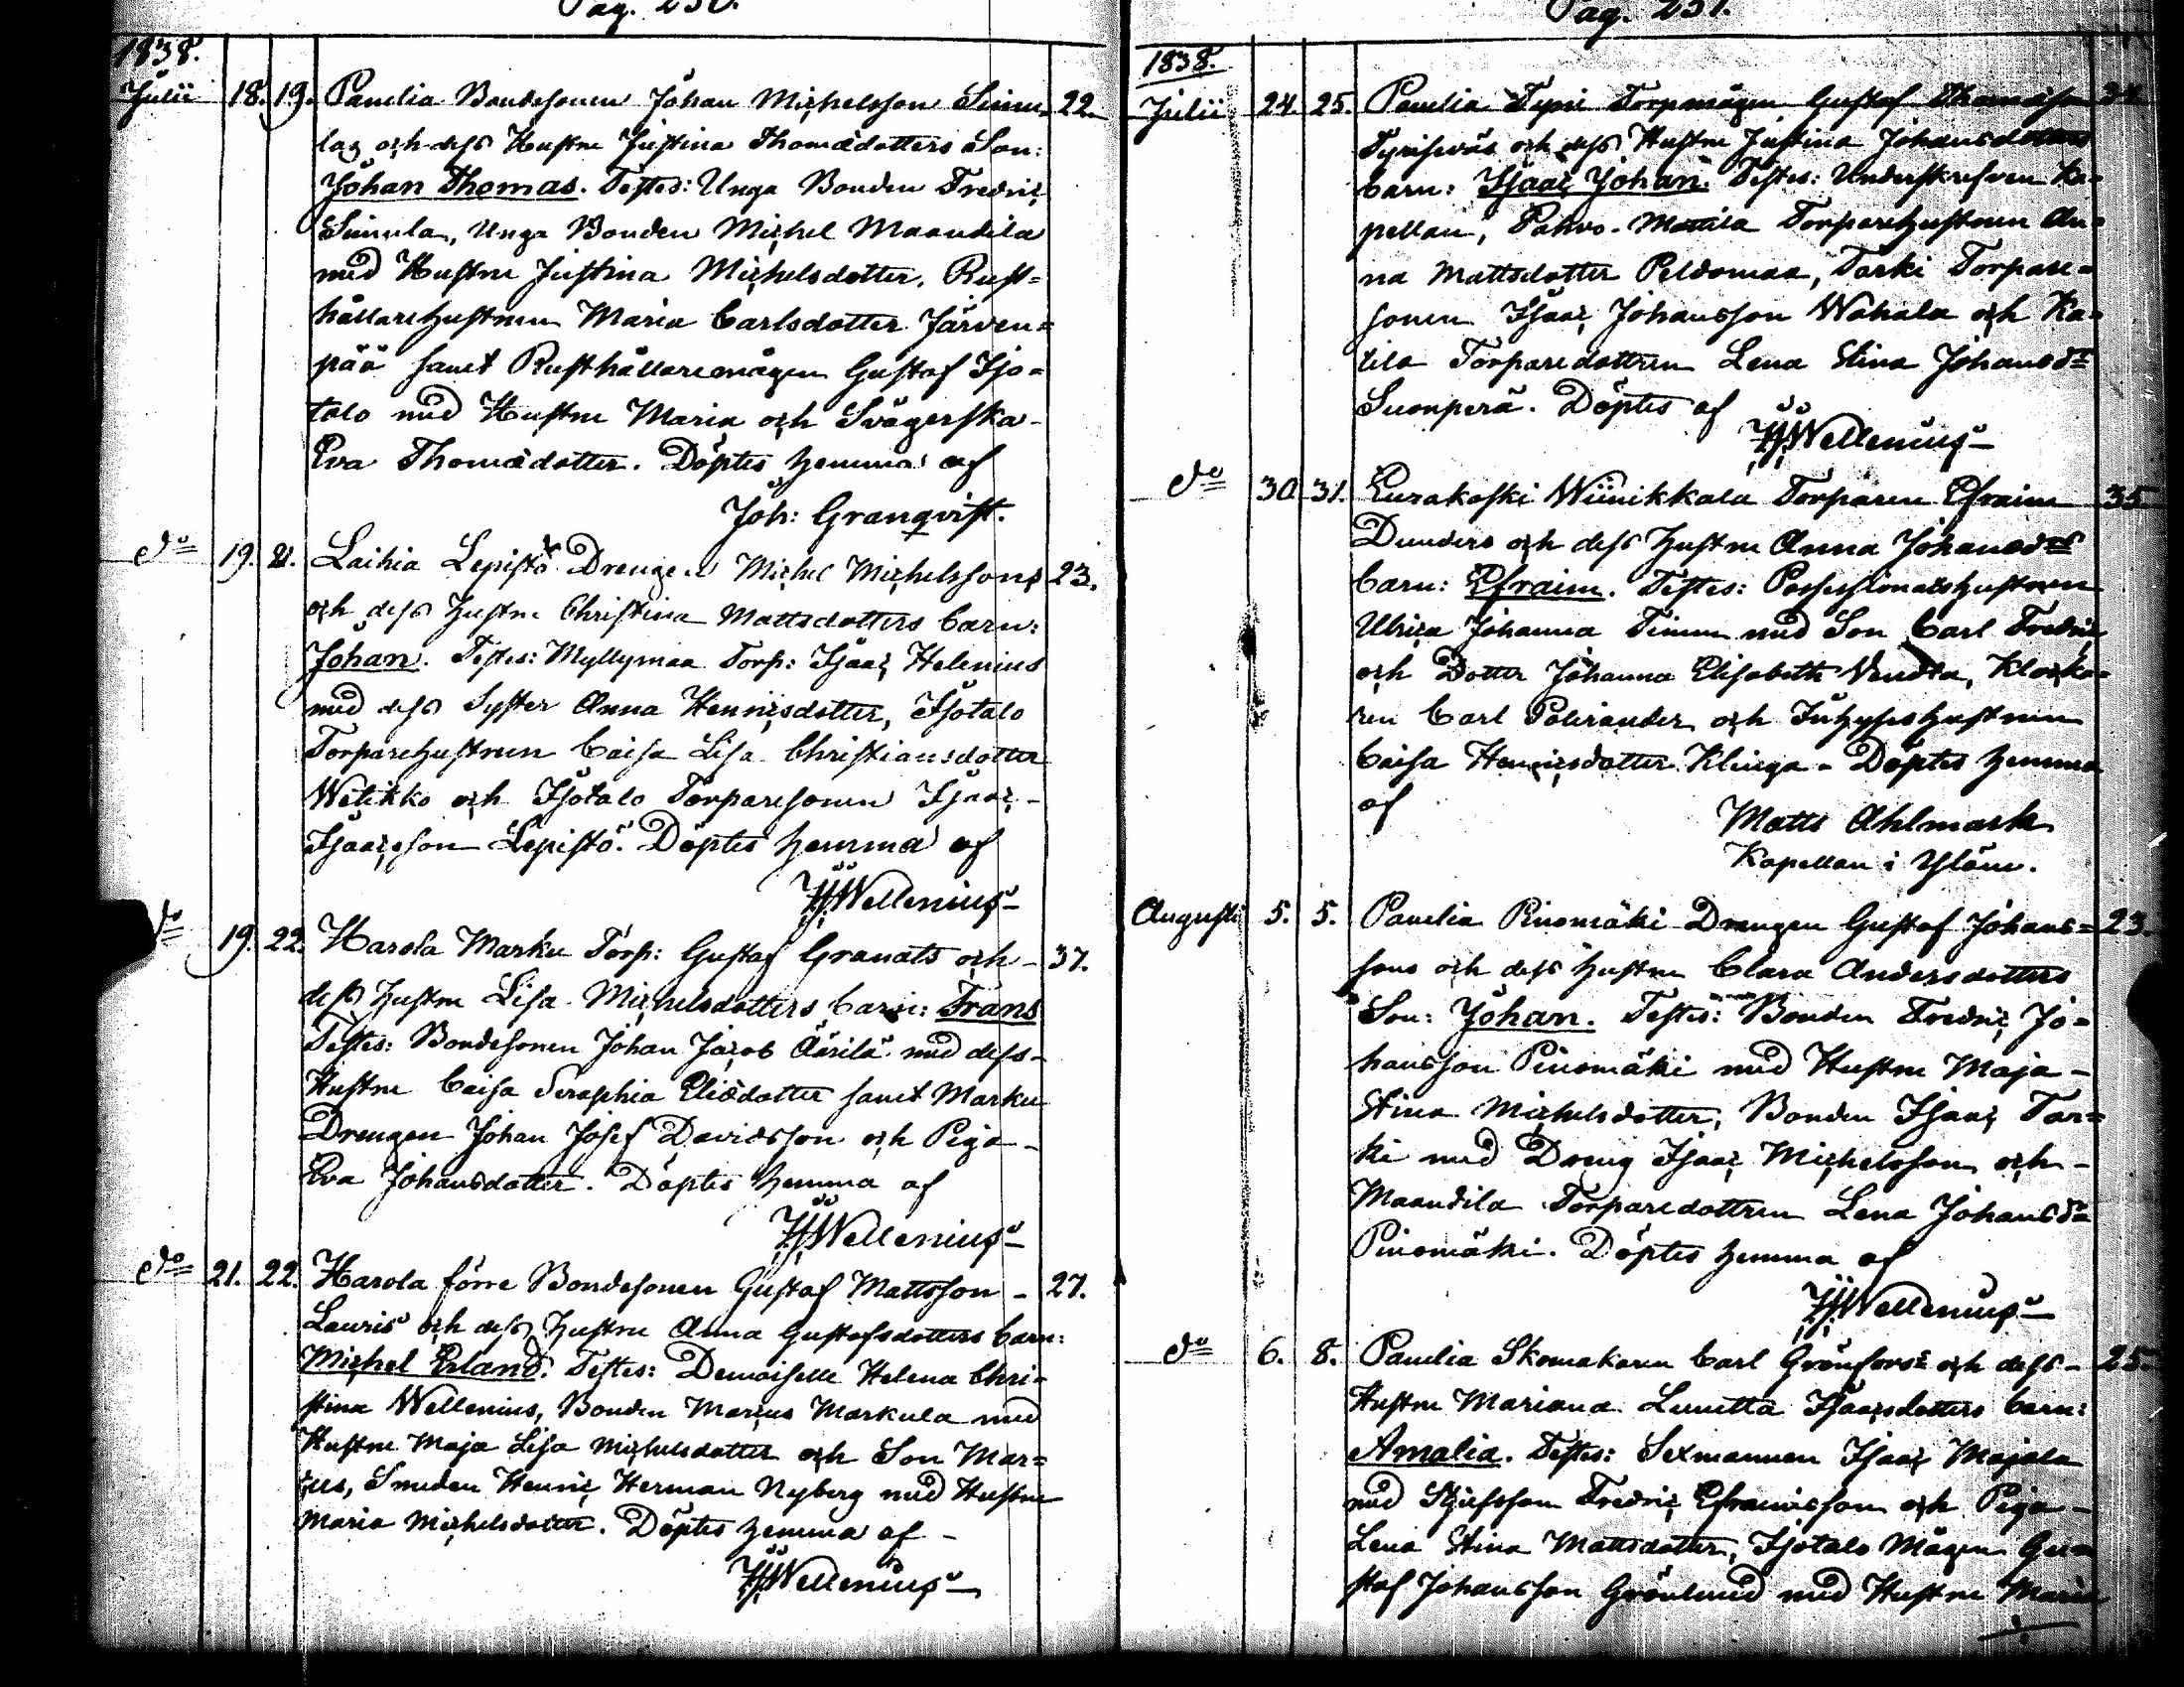 Pag. 230.
1838.
Julii 18. 19. Panelia Bondesonen Johan Michelsson Simu- 22.
las och dess Hustru Justina Thomædotters Son:
Johan Thomas. Testes: Unga Bonden Fredric
Simula, Unga Bonden Michel Maandila
med Hustru Justina Michelsdotter, Rust=
hållarehustrun Maria Carlsdotter Järven=
pää samt Rusthållaremågen Gustaf Iso=
talo med Hustru Maria och Svägerska
Eva Thomædotter. Döptes hemma af
Joh: Granqvist.
do 19. 21. Laihia Lepistö Drengen Michel Michelssons 23.
och dess hustru Christina Mattsdotters barn:
Johan. Testes: Myllymaa Torp: Isaac Helenius
med dess Syster Anna Henricsdotter, Isotalo
Torparehustrun Caisa Lisa Christiansdotter
Wetikko och Isotalo Torparesonen Isaac
Isaacsson Lepistö. Döptes hemma af
HJWellenius
do 19. 22. Harola Marku Torp: Gustaf Granats och 37.
dess hustru Lisa Michelsdotters barn: Frans
Testes: Bondesonen Johan Jacob Äärilä med dess
Hustru Caisa Seraphia Eliædotter samt Marku
Drengen Johan Josef Davidsson och Piga
Eva Johansdotter. Döptes hemma af
HJWellenius
do 21. 22. Harola förre Bondesonen Gustaf Mattsson 27.
Lauris och dess hustru Anna Gustafsdotters barn:
Michel Erland. Testes: Demoiselle Helena Chri=
stina Wellenius, Bonden Marcus Markula med
Hustru Maja Lisa Michelsdotter och Son Mar=
cus, Smeden Henric Herman Nyberg med Hustru
Maria Michelsdotter. Döptes hemma af
HJWellenius
Pag. 231.
1838.
Julii 24. 25. Panelia Tyni Torpmågen Gustaf Thomasson 34.
och dess Hustru Justina Johansdotters
barn: Isaac Johan. Testes: Underskrefven Ka=
pellan, Pahvo-Mattila Torparehustrun An=
na Mattsdotter Peldomaa, Tarki Torpare=
sonen Isaac Johansson Wahala och Ka=
tila Torparedottren Lena Stina Johansdr
Suonperä. Döptes af
HJWellenius
do 30. 31. Eurakoski Wiinikkala Torparen Efraim 35.
Dunders och dess hustru Anna Johansdrs
barn: Efraim. Testes: Possessionatshustrun
Ulrica Johanna Timm med Son Carl Fredric
och Dotter Johanna Elisabeth Vendla, Klocka=
ren Carl Polviander och Inhyseshustrun
Caisa Henricsdotter Klinga. Döptes hemma
af
Matts Ahlmark
Kapellan i Yläne.
Augusti 5. 5. Panelia Pinomäki Drengen Gustaf Johans= 23.
sons och dess hustru Clara Andersdotters
Son: Johan. Testes: Bonden Fredric Jo=
hansson Pinomäki med Hustru Maja
Stina Michelsdotter, Bonden Isaac Tar=
ki med Dreng Isaac Michelsson och
Maandila Torparedottren Lena Johansdr
Pinomäki. Döptes hemma af
HJWellenius
do 6. 8. Panelia Skomakaren Carl Grönfors och dess 25.
Hustru Mariana Lunetta Isaacsdotters barn:
Amalia. Testes: Sexmannen Isaac Majala
med Stjufsson Fredric Efraimsson och Piga
Lena Stina Mattsdotter, Isotalo Mågen Gu=
staf Johansson Grönlund med Hustru Maria